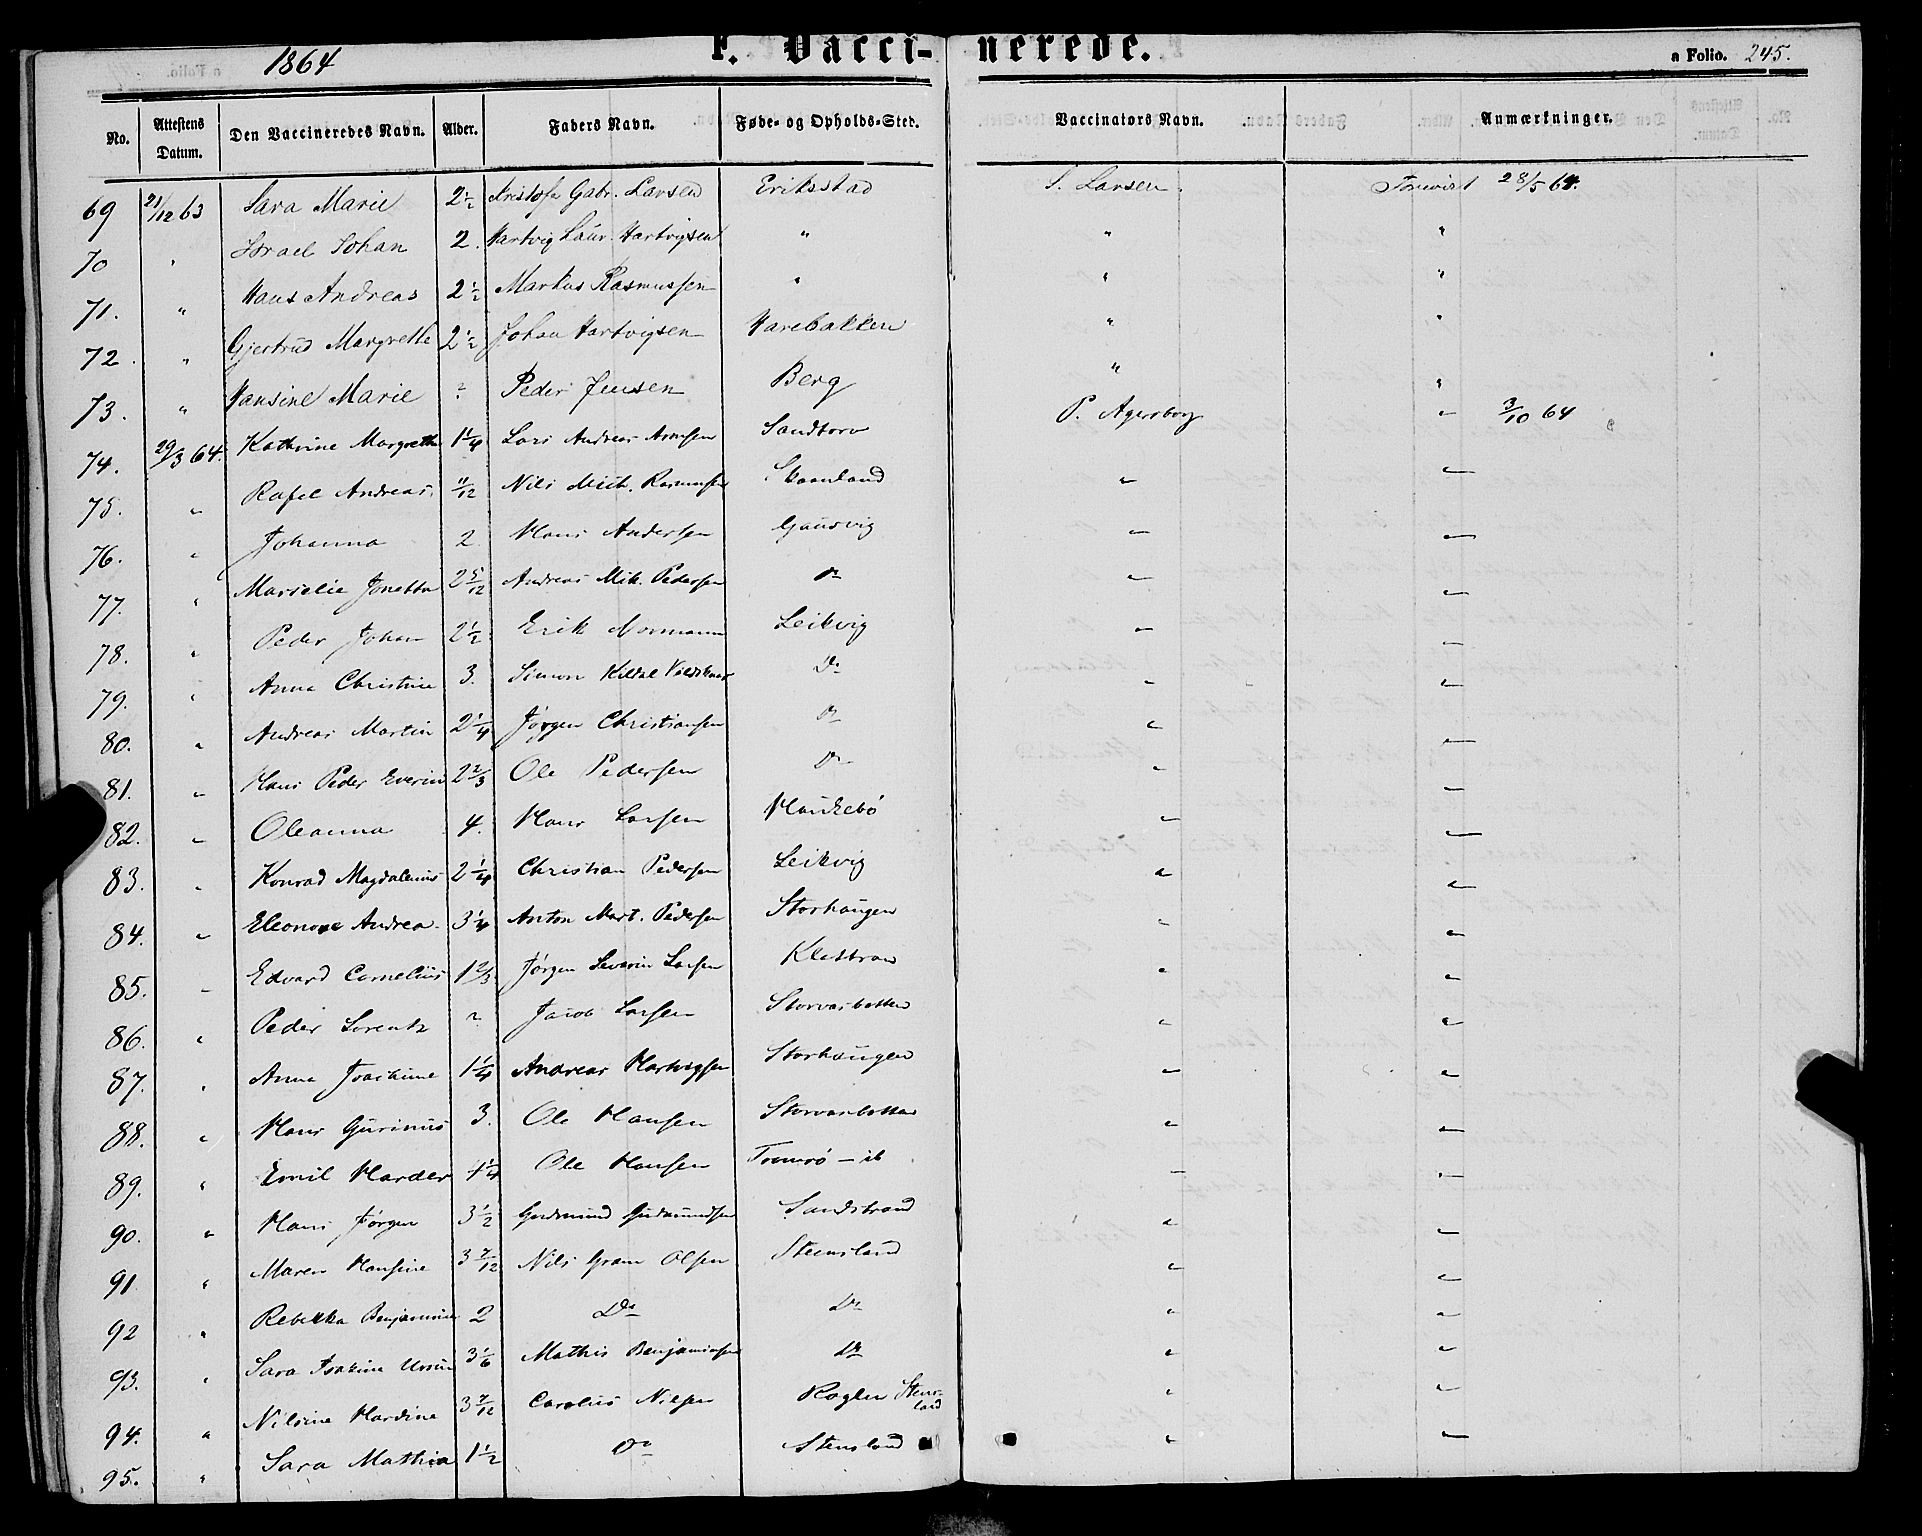 1864 F. Vacci- nerede. a Folio. 245.
No. Attestens Datum. Den Vaccineredes Navn. Alder. Faders Navn. Føde- og Opholds-Sted. Vaccinators Navn. Anmærkninger.
69 21/12 63 Sara Marie 2½ Kristofer Gabr. Larsen Eriksstad S. Larsen. Forevist 28/5 64.
70 " Israel Johan 2. Hartvig Laur. Hartvigsen " " "
71. " Hans Andreas 2½ Markus Rasmussen " " "
72. " Gjertrud Margrethe 2½ Johan Hartvigsen Harebakken " "
73. " Hansine Marie 2 Peder Jensen Berg " "
74. 29/3 64. Kathrine Margrethe 1¼ Lars Andreas Arnesen Sandtorv P. Agersborg " 3/10 64
75. " Rafel Andreas 11/12 Nils Mich. Rasmussen Skaanland " "
76. " Johanna 2 Hans Andersen Gausvig " "
77. " Marselie Jonetta 2 5/12 Andreas Mik. Pedersen Do " "
78. " Peder Johan 2½ Erik Normann Leikvig " "
79. " Anna Christine 3. Simon Kildal Do " "
80. " Andreas Martin 2¼ Jørgen Christiansen Do " "
81. " Hans Peder Everin 2⅔ Ole Pedersen Do " "
82. " Oleanna 4. Hans Larsen Haukebø " "
83. " Konrad Magdalenus 2¼ Christian Pedersen Leikvig " "
84. " Eleonore Andrea 3¼ Anton Mart. Pedersen Storhaugen " "
85. " Edvard Cornelius 1⅔ Jørgen Severin Larsen Klestran " "
86. " Peder Lorentz 2 Jacob Larsen Storvasbotten " "
87. " Anna Joachime 1¼ Andreas Hartvigsen Storhaugen " "
88. " Hans Gurinius 3. Ole Hansen Storvasbotten " "
89. " Emil Harder 4¼ Ole Hansen Tromsø - ib " "
90. " Hans Jørgen 3½ Gudmund Gudmundsen Sandstrand " "
91 " Maren Hansine 3 7/12 Nils Gram Olsen Steensland " "
92 " Rebekka Benjamine 2 Do Do " "
93. " Sara Isakine Ursin 3⅙ Mathis Benjaminsen Do " "
94. " Nilsine Hardine 3 7/12 Carolius Nilsen Roglen Stens-
land " "
95. " Sara Mathia 1½ Do Stensland " "